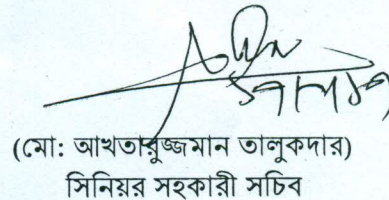 (মো: আখতারুজ্জমান তালুকদার)
সিনিয়র সহকারী সচিব